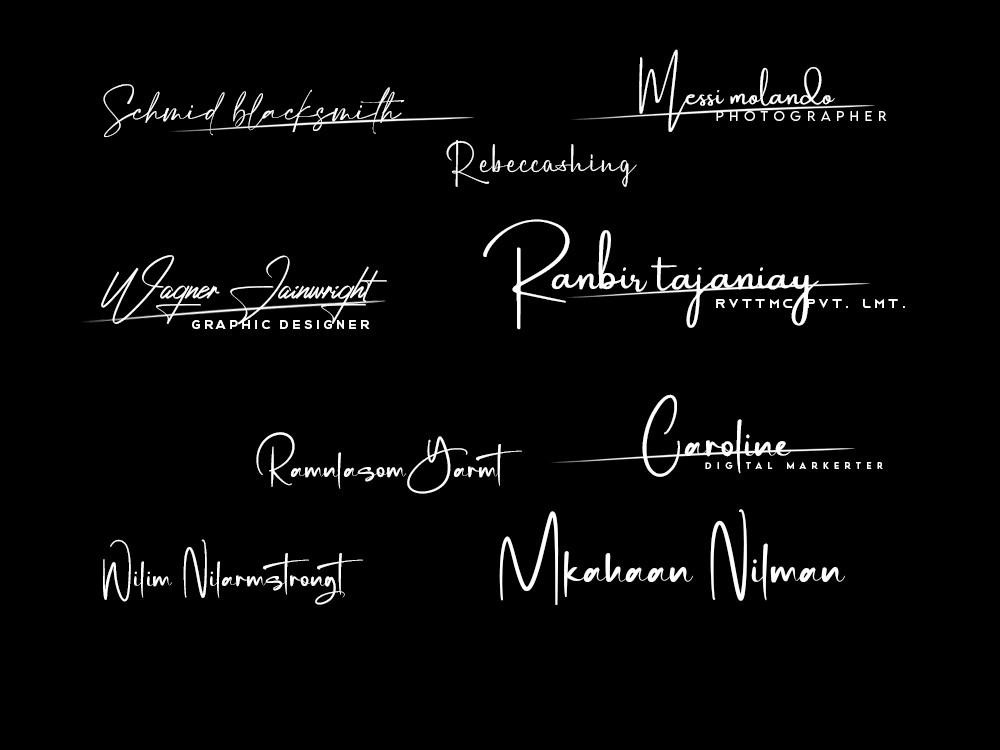 Schmid blacksmith
Messi molando
PHOTOGRAPHER
Rebeccashing
Wagner Jainwright
GRAPHIC DESIGNER
Ranbir tajaniay
RVTTMC PVT. LMT.
Caroline
DIGITAL MARKERTER
Ramnlasom Yarmt
Wilim Nilarmstrongt
Mkahaan Nilman